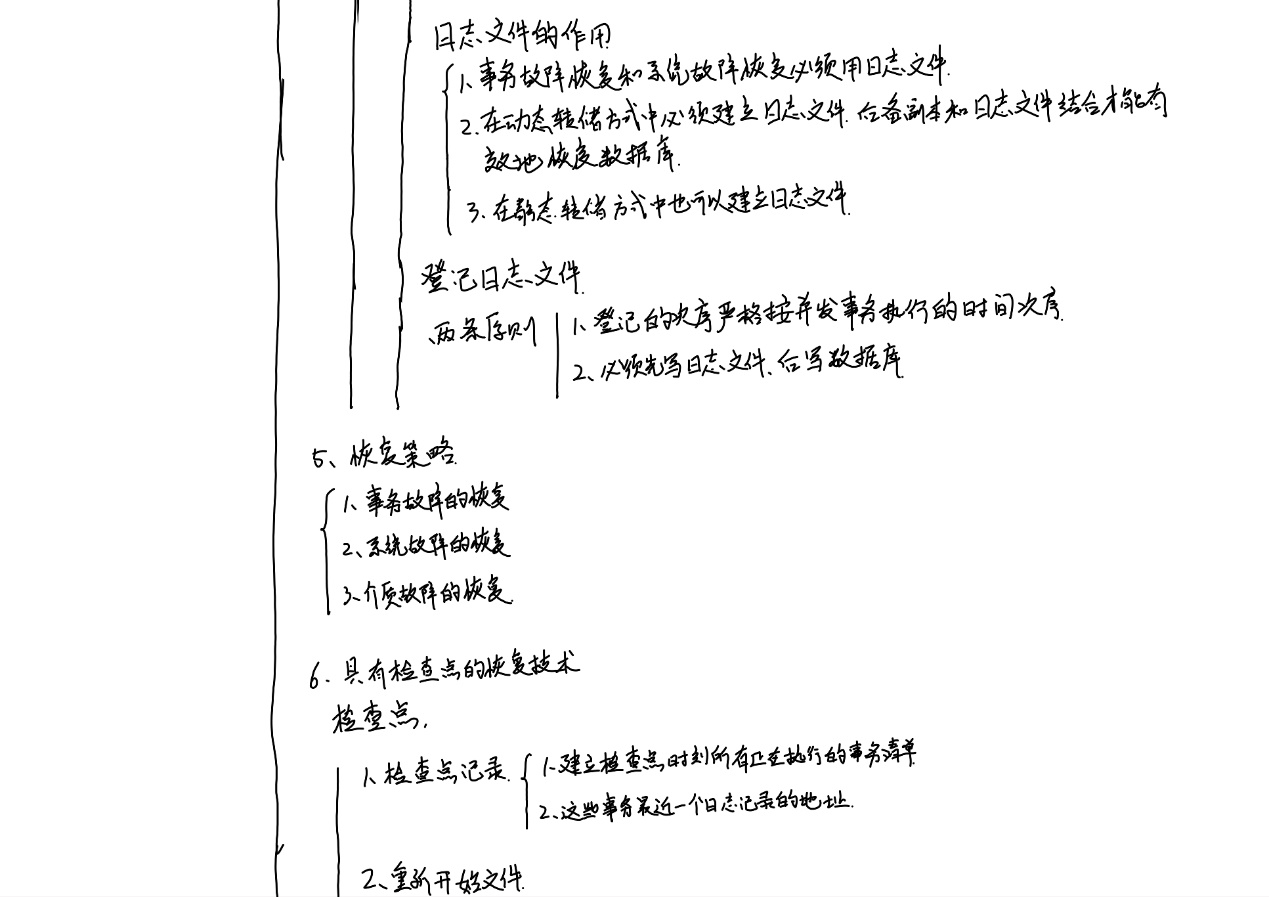 日志文件的作用
1、事务故障恢复和系统故障恢复必须用日志文件.
2.在动态转储方式中必须建立日志文件.后备副本和日志文件结合才能有
效地恢复数据库.
3、在静态转储方式中也可以建立日志文件.
登记日志文件
两条原则
1、登记的次序严格按并发事务执行的时间次序.
2、必须先写日志文件、后写数据库
5、恢复策略
1、事务故障的恢复
2、系统故障的恢复
3、介质故障的恢复
6.具有检查点的恢复技术
检查点,
1、检查点记录.
1.建立检查点时刻所有正在执行的事务清单
2、这些事务最近一个日志记录的地址.
2、重新开始文件.